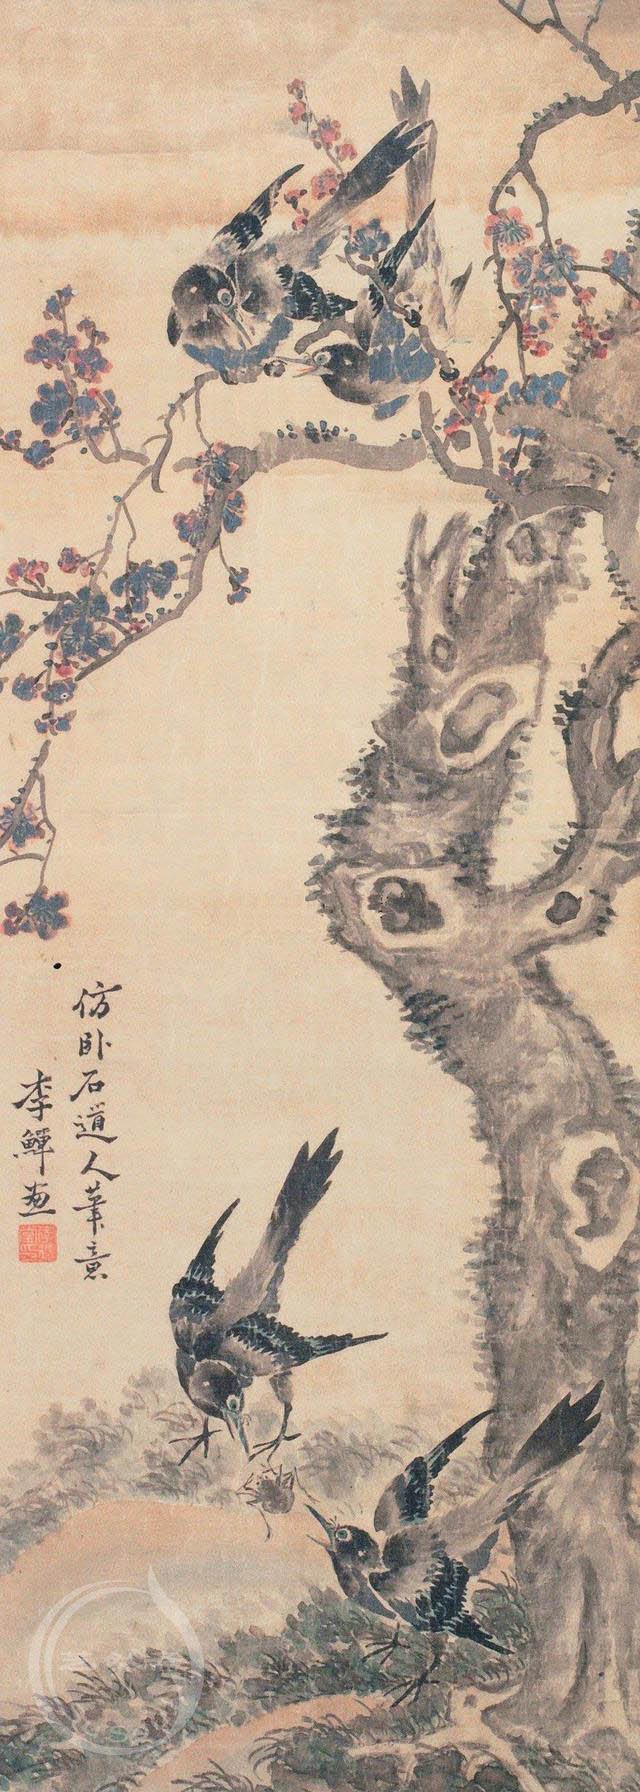 仿卧石道人筆意
李鱓画